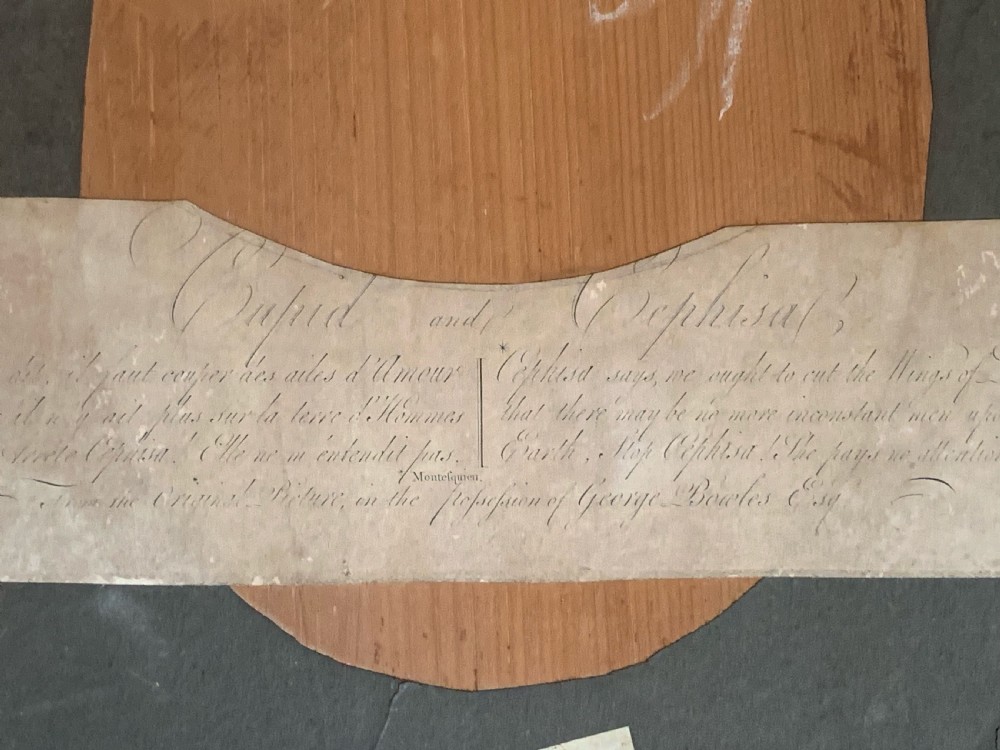 Cupid and Cephisa
il faut couper des ailes d'Amour
il n'y ait plus sur la terre d'Hommes
Cephisa! Elle ne m'entendit pas.
Cephisa says, we ought to cut the Wings of
that there may be no more inconstant men
Earth, Stop Cephisa! She pays no attention
Montesquieu.
From the Original Picture, in the Possession of George Bowles Esq